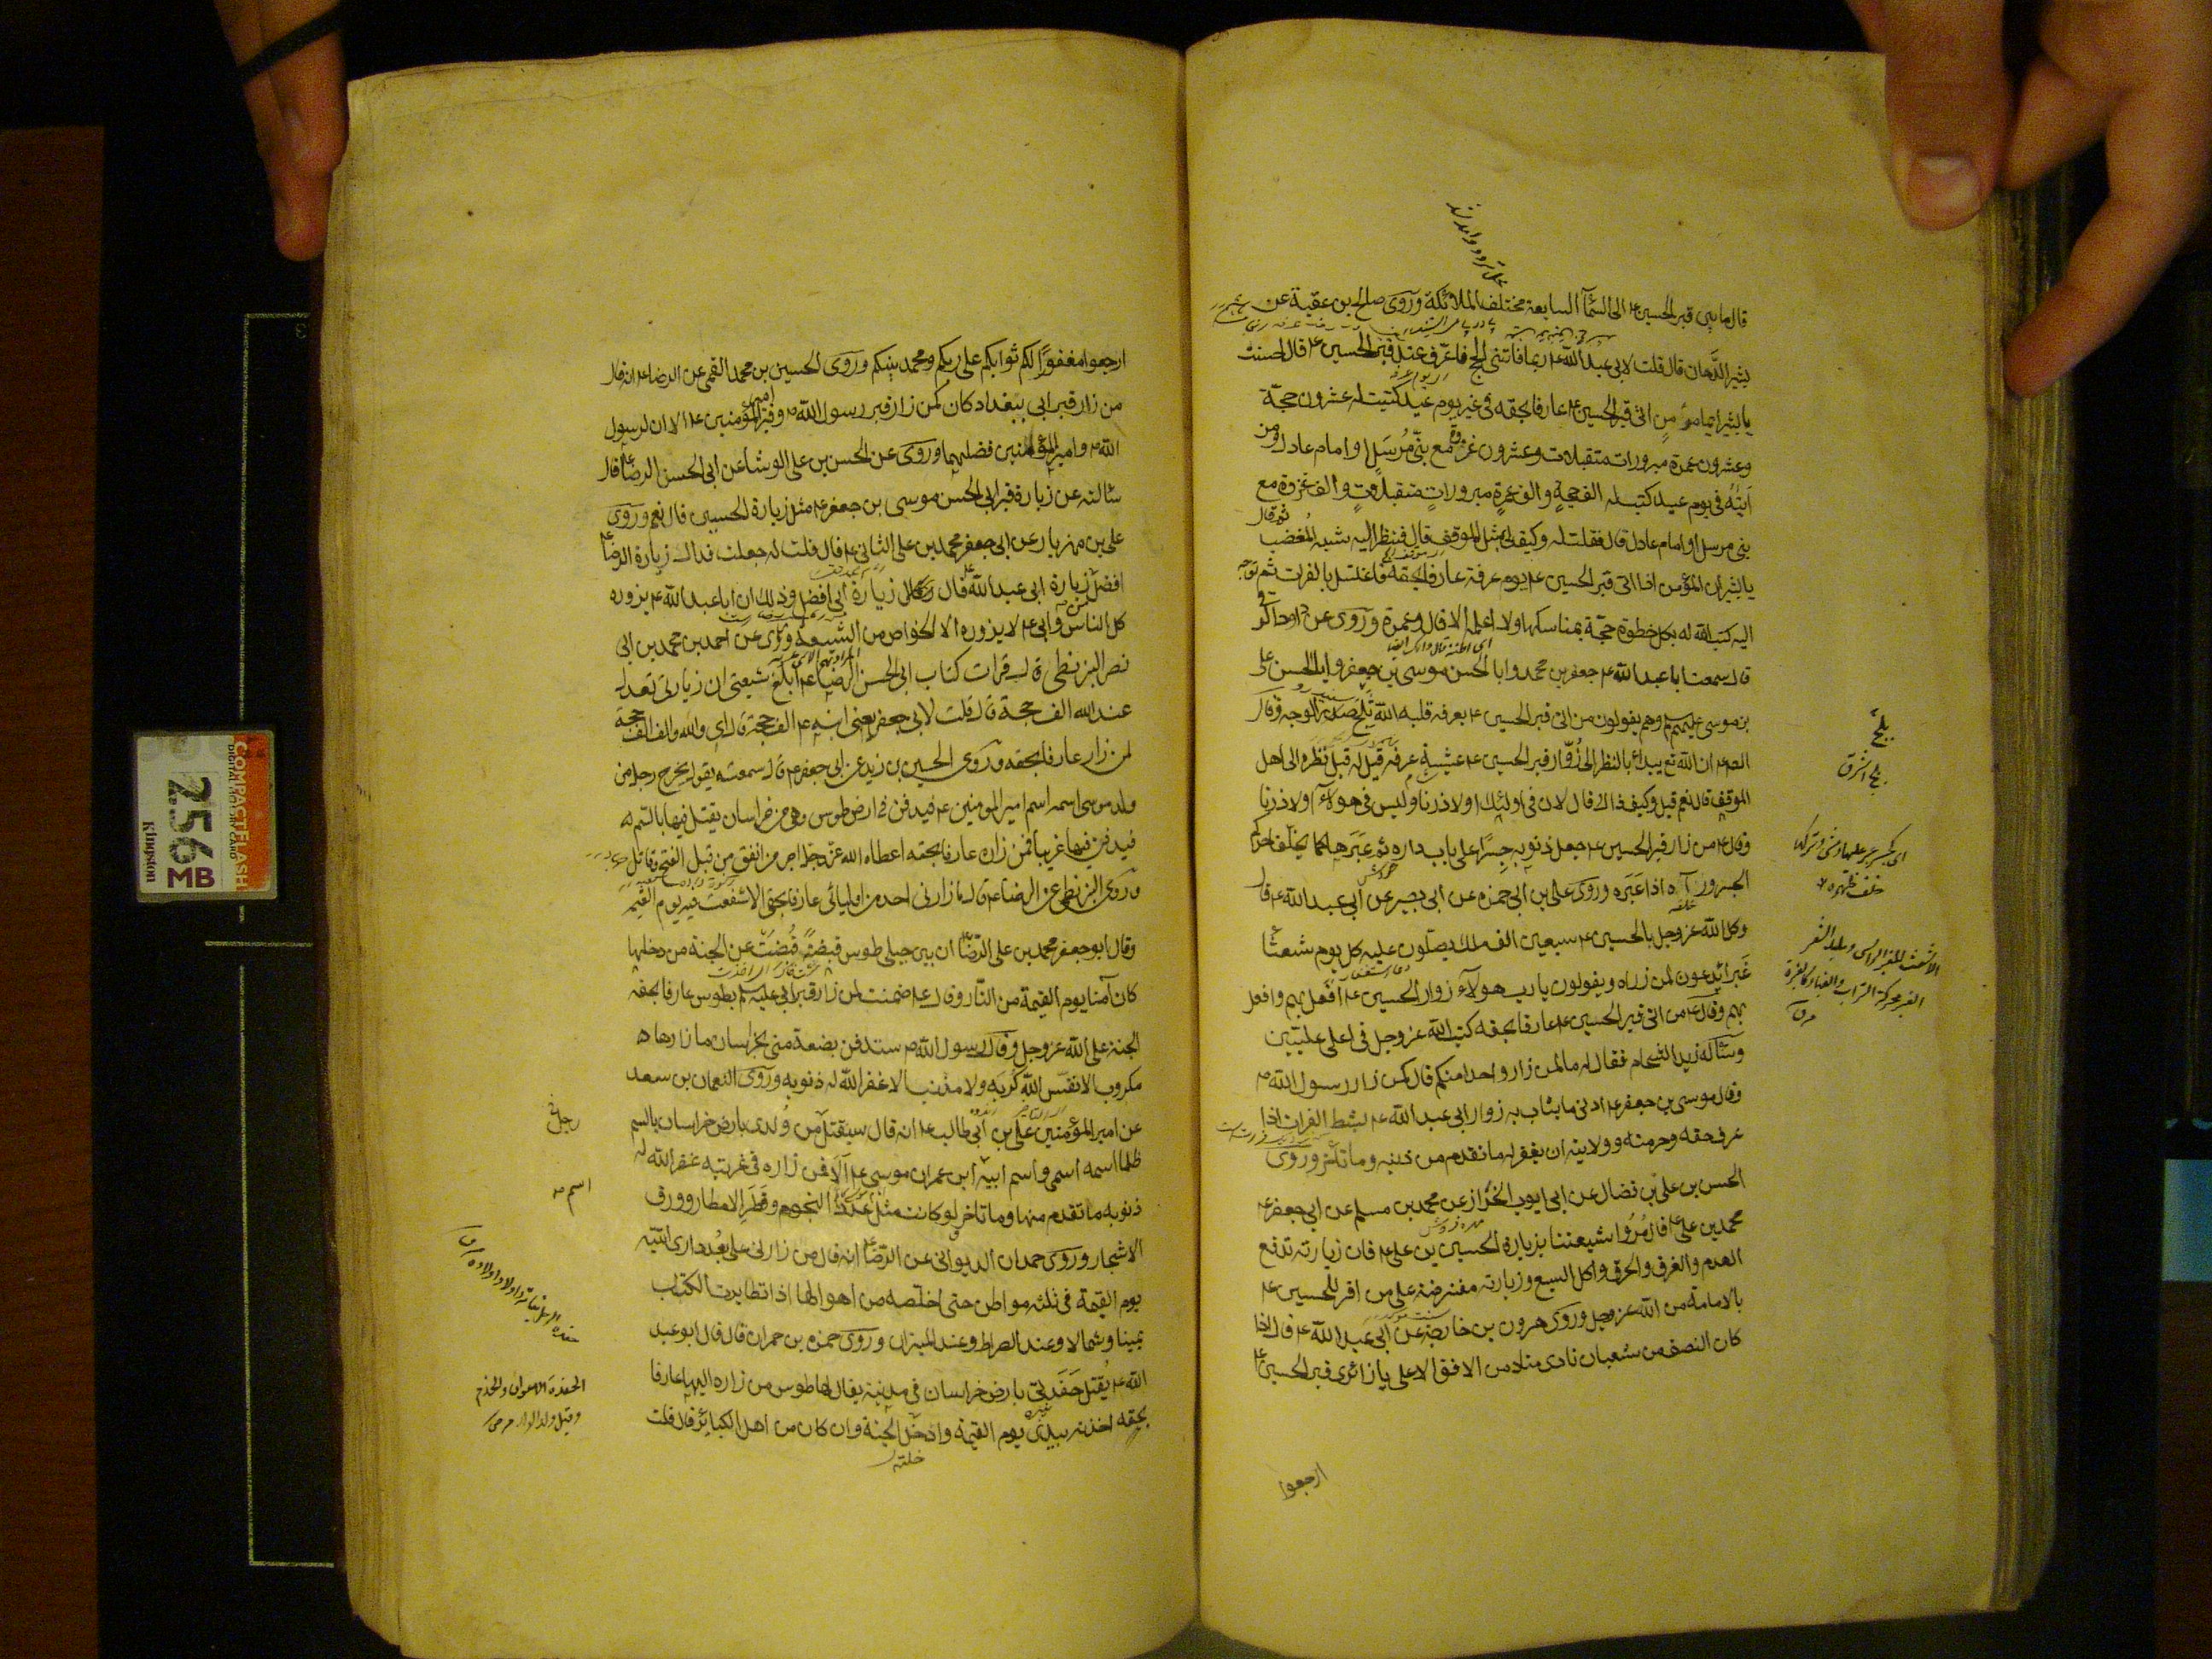 قال ما بين قبر الحسين ع الى السمآ السابعة مختلف الملائكة وروى صلح بن عقبة عن
بشير الدهان قال قلت لابي عبد الله ع ربما فاتنى الحج فاعرف عند قبر الحسين ع قال احسنت
يا بشير ايما مؤمن اتى قبر الحسين ع عارفا بحقه فى غير يوم عيد كتبت له عشرون حجة
وعشرون عمرة مبرورات متقبلات وعشرون غزوة مع نبى مرسل او امام عادل ومن
اتيه فى يوم عيد كتب له الف حجة والف عمرة مبرورات متقبلات والف غزوة مع
نبى مرسل او امام عادل قال فقلت له وكيف لى بمثل الموقف قال فنظر الىّ شبه المغضب ثم قال
يا بشير ان المؤمن اذا اتى قبر الحسين ع يوم عرفة عارفا بحقه فاغتسل بالفرات ثم توجه
اليه كتب الله له بكل خطوة حجة بمناسكها ولا اعلمه الا قال وعمرة وروى عن
قال سمعت ابا عبد الله ع جعفر بن محمد وابا الحسن موسى بن جعفر وابا الحسن على
بن موسى عليهم وهم يقولون من اتى قبر الحسين ع بعرفه قلبه الله ثلج الوجه وقال
الص ع ان الله تع يبدأ بالنظر الى زوار قبر الحسين ع عشية عرفه قيل له قبل نظره الى اهل
الموقف قال نعم قيل وكيف ذاك قال لان فى اولئك اولاد زنا وليس فى هولاء اولاد زنا
وقال ع من زار قبر الحسين ع جعل ذنوبه جسرا على باب داره ثم عبرها كما يخلف احدكم
الجسر ورآه اذا عبره وروى على بن ابى حمزه عن ابى بصير عن ابى عبد الله ع قال
وكل الله عز وجل بالحسين ع سبعين الف ملك يصلون عليه كل يوم شعثا
غبرا يدعون لمن زاره ويقولون يا رب هولآء زوار الحسين ع افعل بهم وافعل
بهم وقال ع من اتى قبر الحسين ع عارفا بحقه كتبه الله عز وجل فى اعلى عليين
وسأله زيد الشحام فقال له ما لمن زار واحدا منكم قال كمن زار رسول الله ص
وقال موسى بن جعفر ع ادنى ما يثاب به زوار ابى عبد الله ع بشط الفرات اذا
عرف حقه وحرمته وولايته ان يغفر له ما تقدم من ذنبه وما تأخر وروى
الحسن بن على بن فضال عن ابى ايوب الخزاز عن محمد بن مسلم عن ابى جعفر ع
محمد بن على ع قال مروا شيعتنا بزيارة الحسين بن على ع فان زيارته تدفع
الهدم والغرق والحرق واكل السبع وزيارته مفترضة على من اقر للحسين ع
بالامامة من الله عز وجل وروى هرون بن خارجة عن ابى عبد الله ع قال اذا
كان النصف من شعبان نادى مناد من الافق الاعلى يا زائرى قبر الحسين ع
ارجعوا
بلج
الاشعث المغبر الراس
ارجعوا مغفورا لكم ثوابكم على ربكم ومحمد نبيكم وروى الحسين بن محمد القمى عن الرضا ع انه قال
من زار قبر ابى ببغداد كان كمن زار قبر رسول الله ص وقبر امير المؤمنين ع الا ان لرسول
الله ص وامير المؤمنين فضلهما وروى عن الحسن بن على الوشا عن ابى الحسن الرضا ع قال
سألته عن زيارة قبر ابى الحسن موسى بن جعفر ع مثل زيارة الحسين قال نعم وروى
على بن مهزيار عن ابى جعفر محمد بن على الثانى ع قال قلت له جعلت فداك زيارة الرضا ع
افضل زيارة ابى عبد الله ع قال زيارة ابى افضل وذلك ان ابا عبد الله ع يزوره
كل الناس وابى ع لا يزوره الا الخواص من الشيعة وروى عن احمد بن محمد بن ابى
نصر البزنطى قال قرات كتاب ابى الحسن الرضا ع ابلغ شيعتى ان زيارتى تعدل
عند الله الف حجة قال قلت لابى جعفر يعنى ابنه ع الف حجة قال اى والله والف الف حجة
لمن زاره عارفا بحقه وروى الحسين بن زيد عن ابى جعفر ع قال سمعته يقول يخرج رجل من
ولد موسى اسمه اسم امير المومنين ع فيدفن فى ارض طوس وهى من خراسان يقتل فيها بالسم
فيدفن فيها غريبا فمن زاره عارفا بحقه اعطاه الله عز وجل اجر من انفق من قبل الفتح وقاتل
وروى البزنطى عن الرضا ع قال ما زارنى احد من اوليائى عارفا بحقى الا شفعت فيه يوم القيمة
وقال ابو جعفر محمد بن على الرضا ان بين جبلى طوس قبضة قبضت عن الجنة من دخلها
كان آمنا يوم القيمة من النار وقال ع ضمنت لمن زار قبر ابى عليه السلم بطوس عارفا بحقه
الجنة على الله عز وجل وقال رسول الله ص ستدفن بضعة منى بخراسان ما زارها
مكروب الا نفس الله كربه ولا مذنب الا غفر الله له ذنوبه وروى النعمان بن سعد
عن امير المؤمنين على بن ابى طالب ع انه قال سيقتل من ولدى بارض خراسان بالسم
ظلما اسمه اسمى واسم ابيه ابن عمران موسى ع الا فمن زاره فى غربته غفر الله له
ذنوبه ما تقدم منها وما تاخر لو كانت مثل عدد النجوم وقطر الامطار وورق
الاشجار وروى حمدان الديوانى عن الرضا انه قال من زارنى على بعد دارى اتيته
يوم القيمة فى ثلثه مواطن حتى اخلصه من اهوالها اذا تطايرت الكتب
يمينا وشمالا وعند الصراط وعند الميزان وروى حمزه بن حمران قال قال ابو عبد
الله ع يقتل حفدتى بارض خراسان فى مدينة يقال لها طوس من زاره اليها عارفا
بحقه اخذته بيدى يوم القيمة وادخل الجنة وان كان من اهل الكبائر قال قلت
رجل
اسم
الحفدة الاعوان والخدم
COMPACTFLASH
256 MB
Kingston